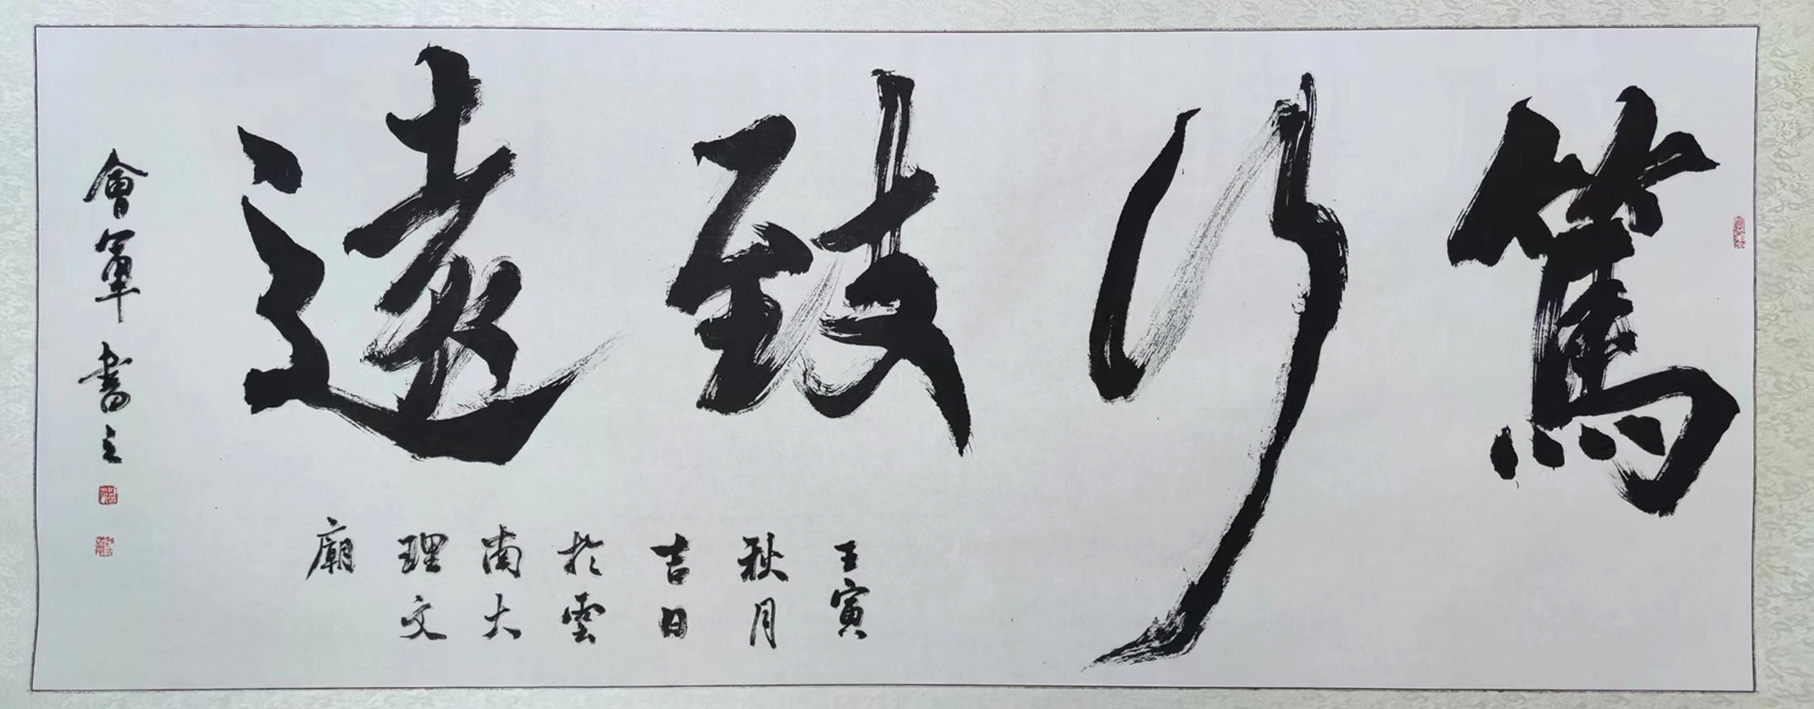 篤行致遠
壬寅
秋月
吉日
於雲
南大
理文
廟
會軍書之